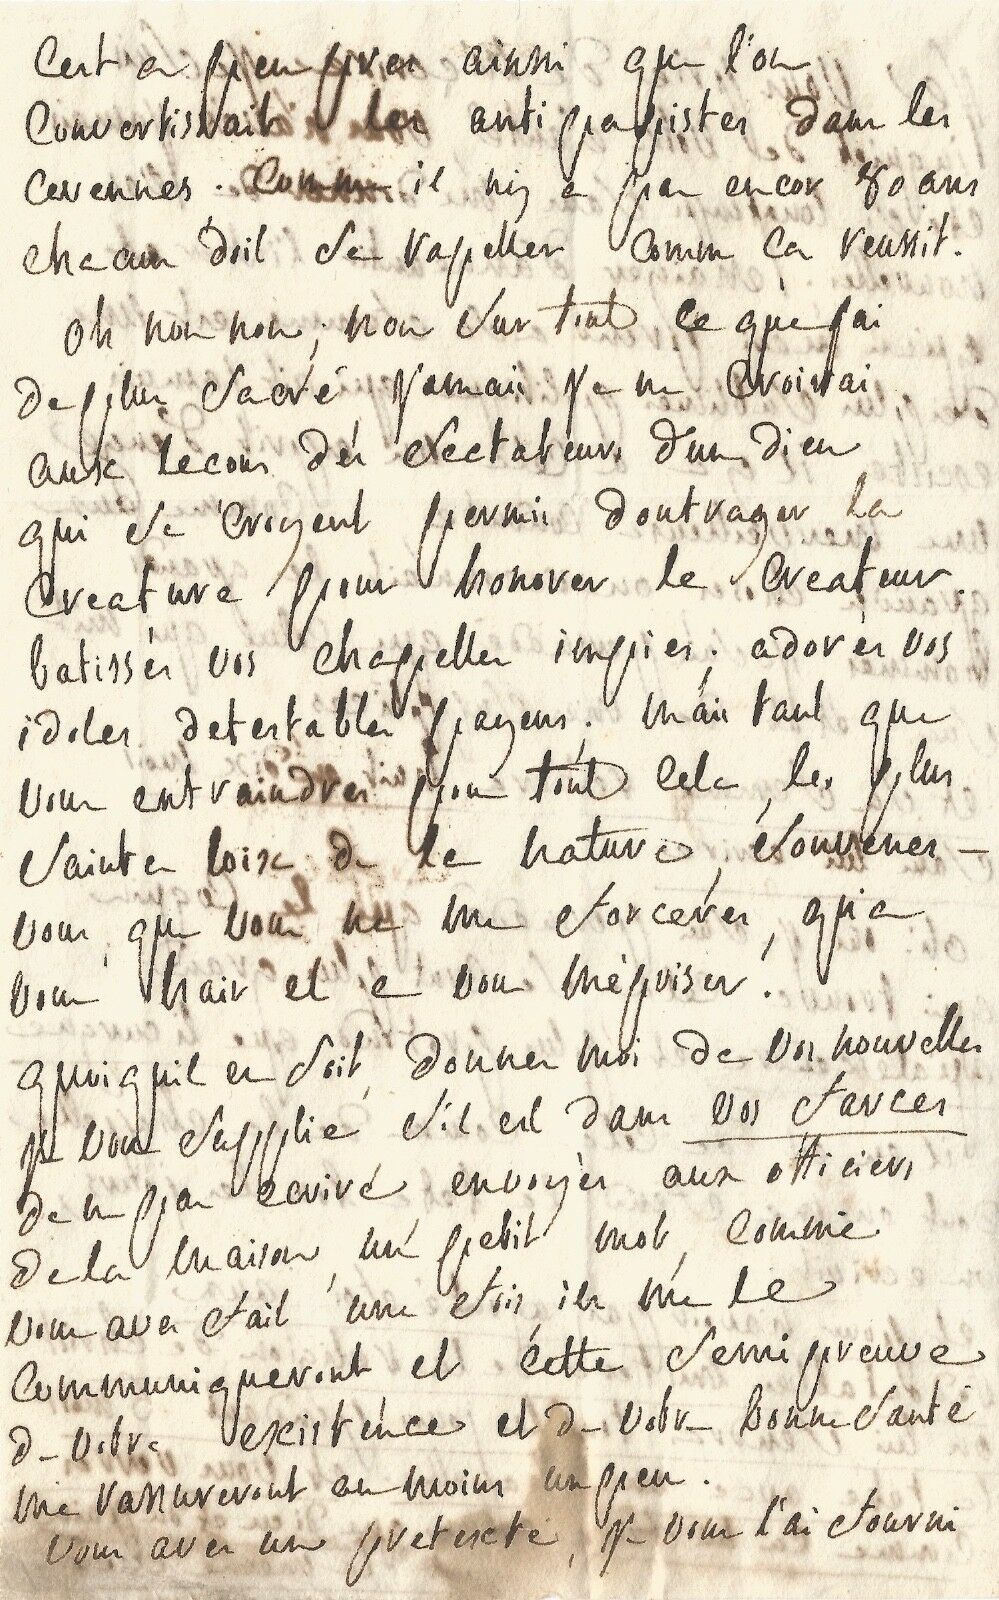 Cest a peu pres ainssi que l'on
Convertissait les antipapistes dans les
Cevennes. Comme il niy a pas encor 80 ans
chacun doit se rapeller comm ca reussit.
oh non non, non sur tout ce que j'ai
de plus sacré jamais je ne croirrai
aux lecons dés sectateurs d'un dieu
qui se croyent permis doutrager la
creature pour honorer le createur.
batissés vos chapelles impies, adorés vos
idoles detestables payens. mais tant que
vous entraindres pour tout cela, les plus
saintes loix de la nature, souvenes-
vous, que vous ne me forcerés, qu'a
vous hair et a vous mépriser!
quoiquil en soit, donnes moi de vos nouvelles
je vous supplie s'il est dans vos forces
de ne pas ecrire envoyés aux officiers
de la maison, un petit mot, comme
vous aves fait une fois, ils me le
communiqueront et cette semi preuve
de votre existence et de votre bonne santé
me rassureront au moins un peu.
vous aves un pretexte, je vous l'ai fourni